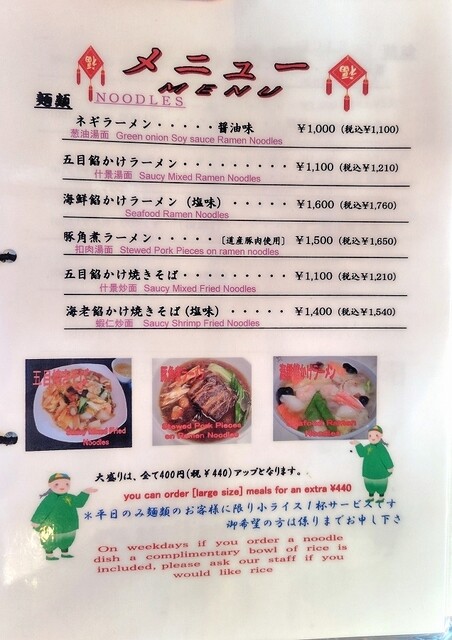 メニュー
MENU
麺類
NOODLES
ネギラーメン・・・・・醤油味 ￥1,000（税込￥1,100）
葱油湯面 Green onion Soy sauce Ramen Noodles
五目餡かけラーメン・・・・・・・・・ ￥1,100（税込￥1,210）
什景湯面 Saucy Mixed Ramen Noodles
海鮮餡かけラーメン（塩味）・・・・・ ￥1,600（税込￥1,760）
Seafood Ramen Noodles
豚角煮ラーメン・・・・・［道産豚肉使用］ ￥1,500（税込￥1,650）
扣肉湯面 Stewed Pork Pieces on ramen noodles
五目餡かけ焼きそば・・・・・・・・・ ￥1,100（税込￥1,210）
什景炒面 Saucy Mixed Fried Noodles
海老餡かけ焼きそば（塩味）・・・・・ ￥1,400（税込￥1,540）
蝦仁炒面 Saucy Shrimp Fried Noodles
Stewed Pork Pieces
on Ramen Noodles
海鮮餡かけラーメン
Noodles
大盛りは、全て400円（税￥440）アップとなります。
you can order [large size] meals for an extra ¥440
＊平日のみ麺類のお客様に限り小ライス１杯サービスです
御希望の方は係りまでお申し下さ
On weekdays if you order a noodle
dish a complimentary bowl of rice is
included, please ask our staff if you
would like rice